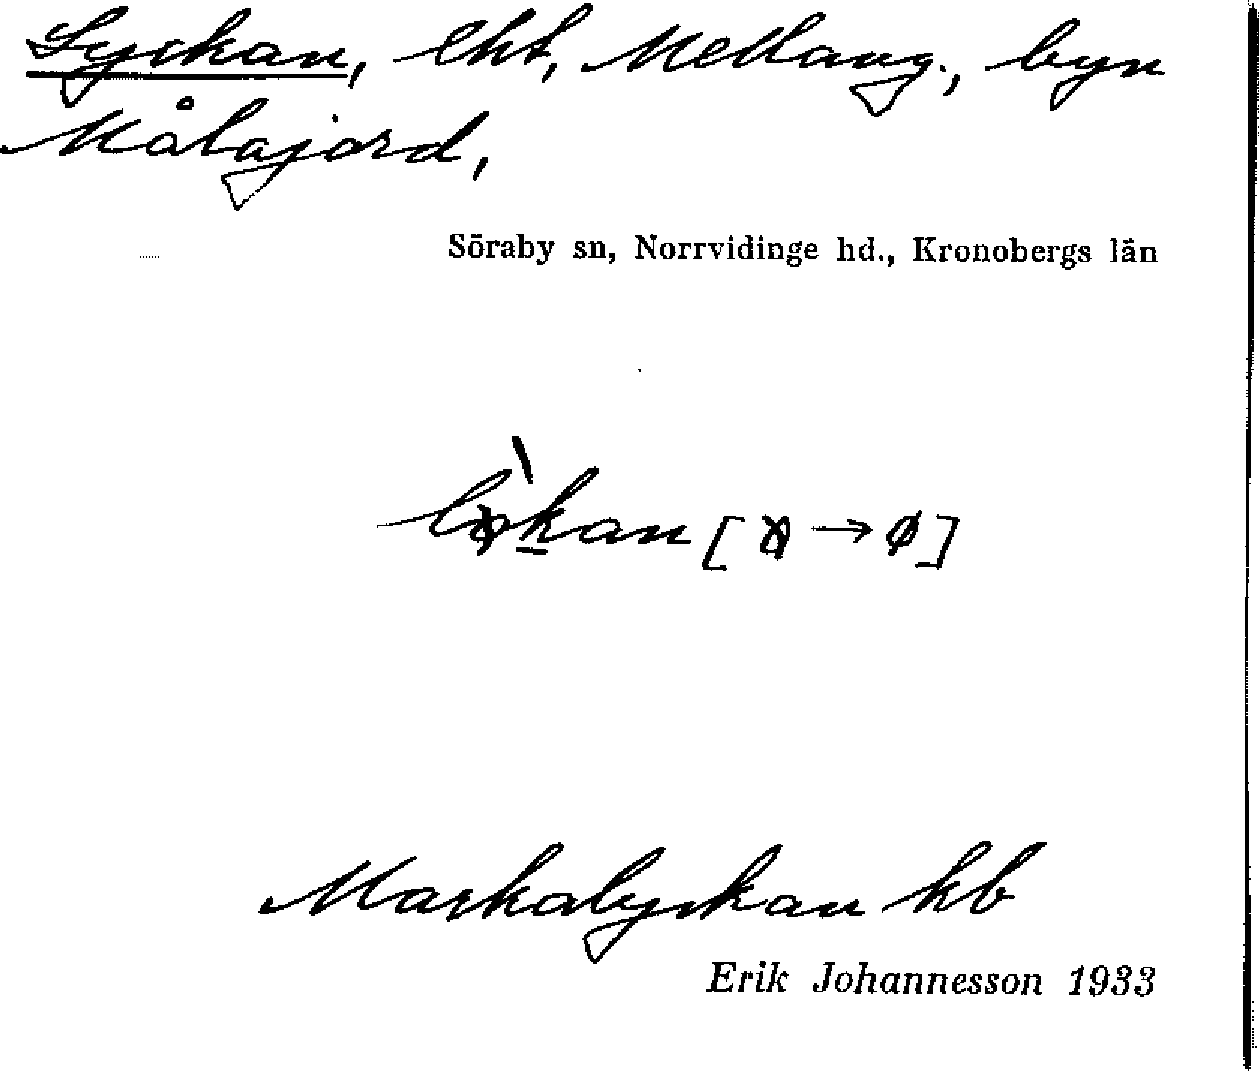 Lyckan, lht, Mellang., byn
Målajord,
Söraby sn, Norrvidinge hd., Kronobergs län
Markalyckan hb
Erik Johannesson 1933